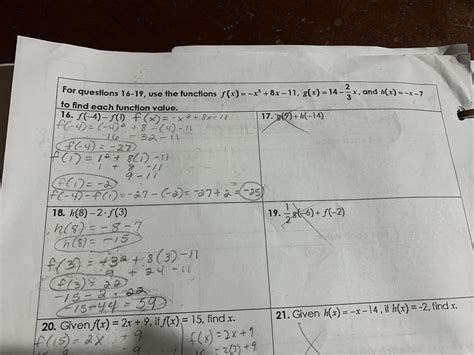 For questions 16-19, use the functions f(x) = -x² + 8x - 11, g(x) = 14 - 2/3 x, and h(x) = -x - 7
to find each function value.
16. f(-4) - f(1) f(x) = -x² + 8x - 11
f(-4) = (-4)² + 8 - (4) - 11
16 - 32 - 11
f(-4) = -27
f(1) = 1² + 8(1) - 11
1 + 8 - 11
9 - 11
f(1) = -2
f(-4) - f(1) = -27 - (-2) = -27 + 2 = -25
17. g(9) + h(-14)
18. h(8) - 2·f(3)
h(8) = -8 - 7
h(8) = -15
f(3) = 3² + 8(3) - 11
9 + 24 - 11
f(3) = 22
-15 - 2 · 22
-15 - 44 = 59
19. 1/2 g(-6) + f(-2)
20. Given f(x) = 2x + 9, if f(x) = 15, find x.
f(15) = 2x + 9 f(x) = 2x + 9
= 2(3) + 9
21. Given h(x) = -x - 14, if h(x) = -2, find x.